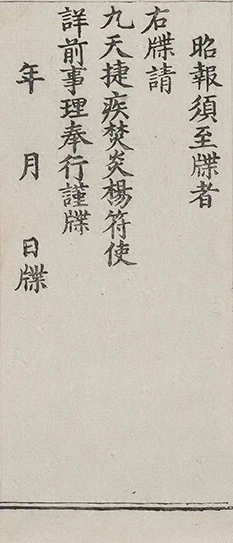 昭報須至牒者
右牒請
九天捷疾焚炎楊符使
詳前事理奉行謹牒
年 月 日牒